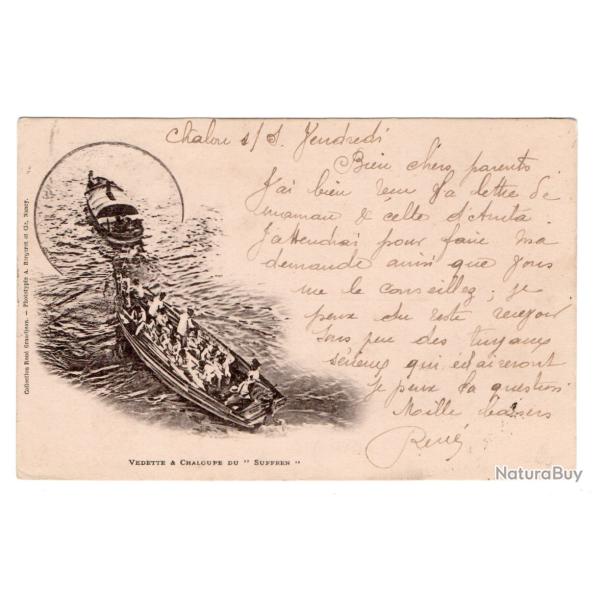 Chalon s/S. Vendredi
Bien chers parents
J'ai bien reçu la lettre de
maman & celle d'Anita.
J'attendrai pour faire ma
demande ainsi que vous
me le conseillez; je
peux du reste recevoir
sous peu des tuyaux
sérieux qui éclaireront
je peux la question
Mille baisers
René
Collection René Grandjean. — Phototypie A. Bergeret et Cie, Nancy.
VEDETTE & CHALOUPE DU " SUFFREN "
NaturaBuy